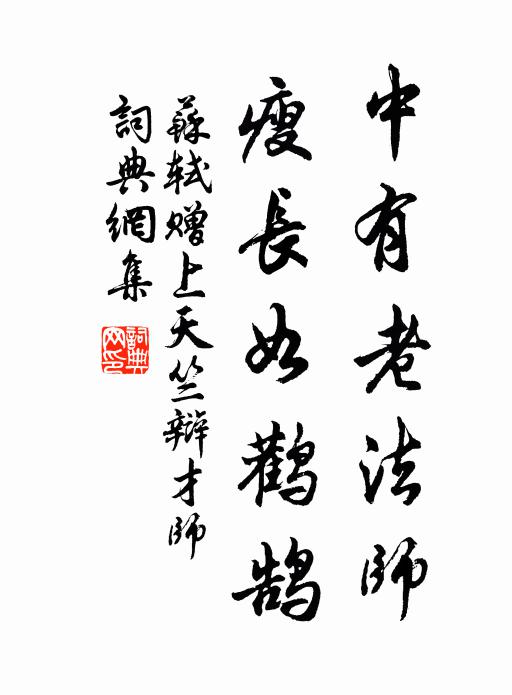 中有老法師
瘦長如鸛鵠
蘇軾贈上天竺辯才師
詞典網集
詞典网印